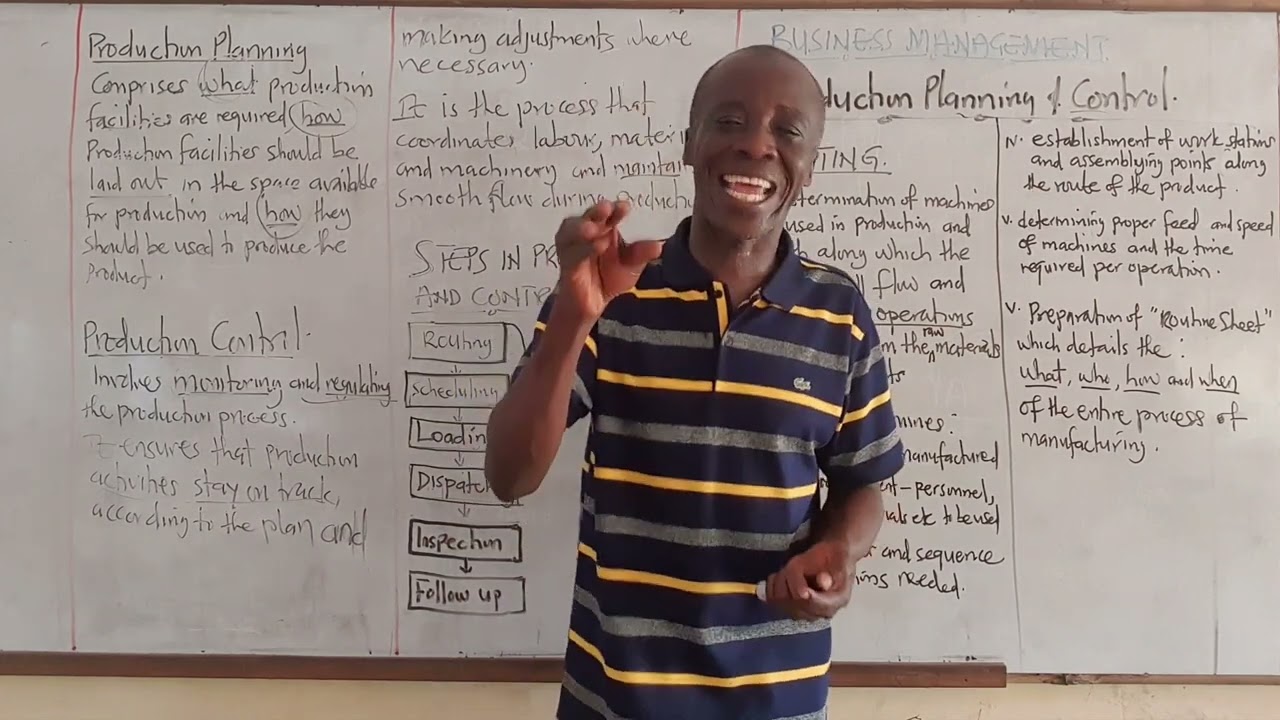 Production Planning
Comprises what production
facilities are required how
Production facilities should be
laid out in the space available
for production and how they
should be used to produce the
Product.
Production Control.
Involves monitoring and regulating
the production process.
It ensures that production
activities stay on track,
according to the plan and
making adjustments where
necessary.
It is the process that
coordinates labour,
and machinery and maintain
smooth flow during
STEPS IN
AND
Routing
Scheduling
Inspection
Follow up
BUSINESS MANAGEMENT
Planning & Control.
of machines
used in production and
along which the
flow and
operations
the raw materials
manufactured
personnel,
to be used
and sequence
needed.
iv. establishment of work stations
and assemblying points along
the route of the product.
v. determining proper feed and speed
of machines and the time
required per operation.
v. Preparation of "Routine Sheet"
which details the:
what, who, how and when
of the entire process of
manufacturing.